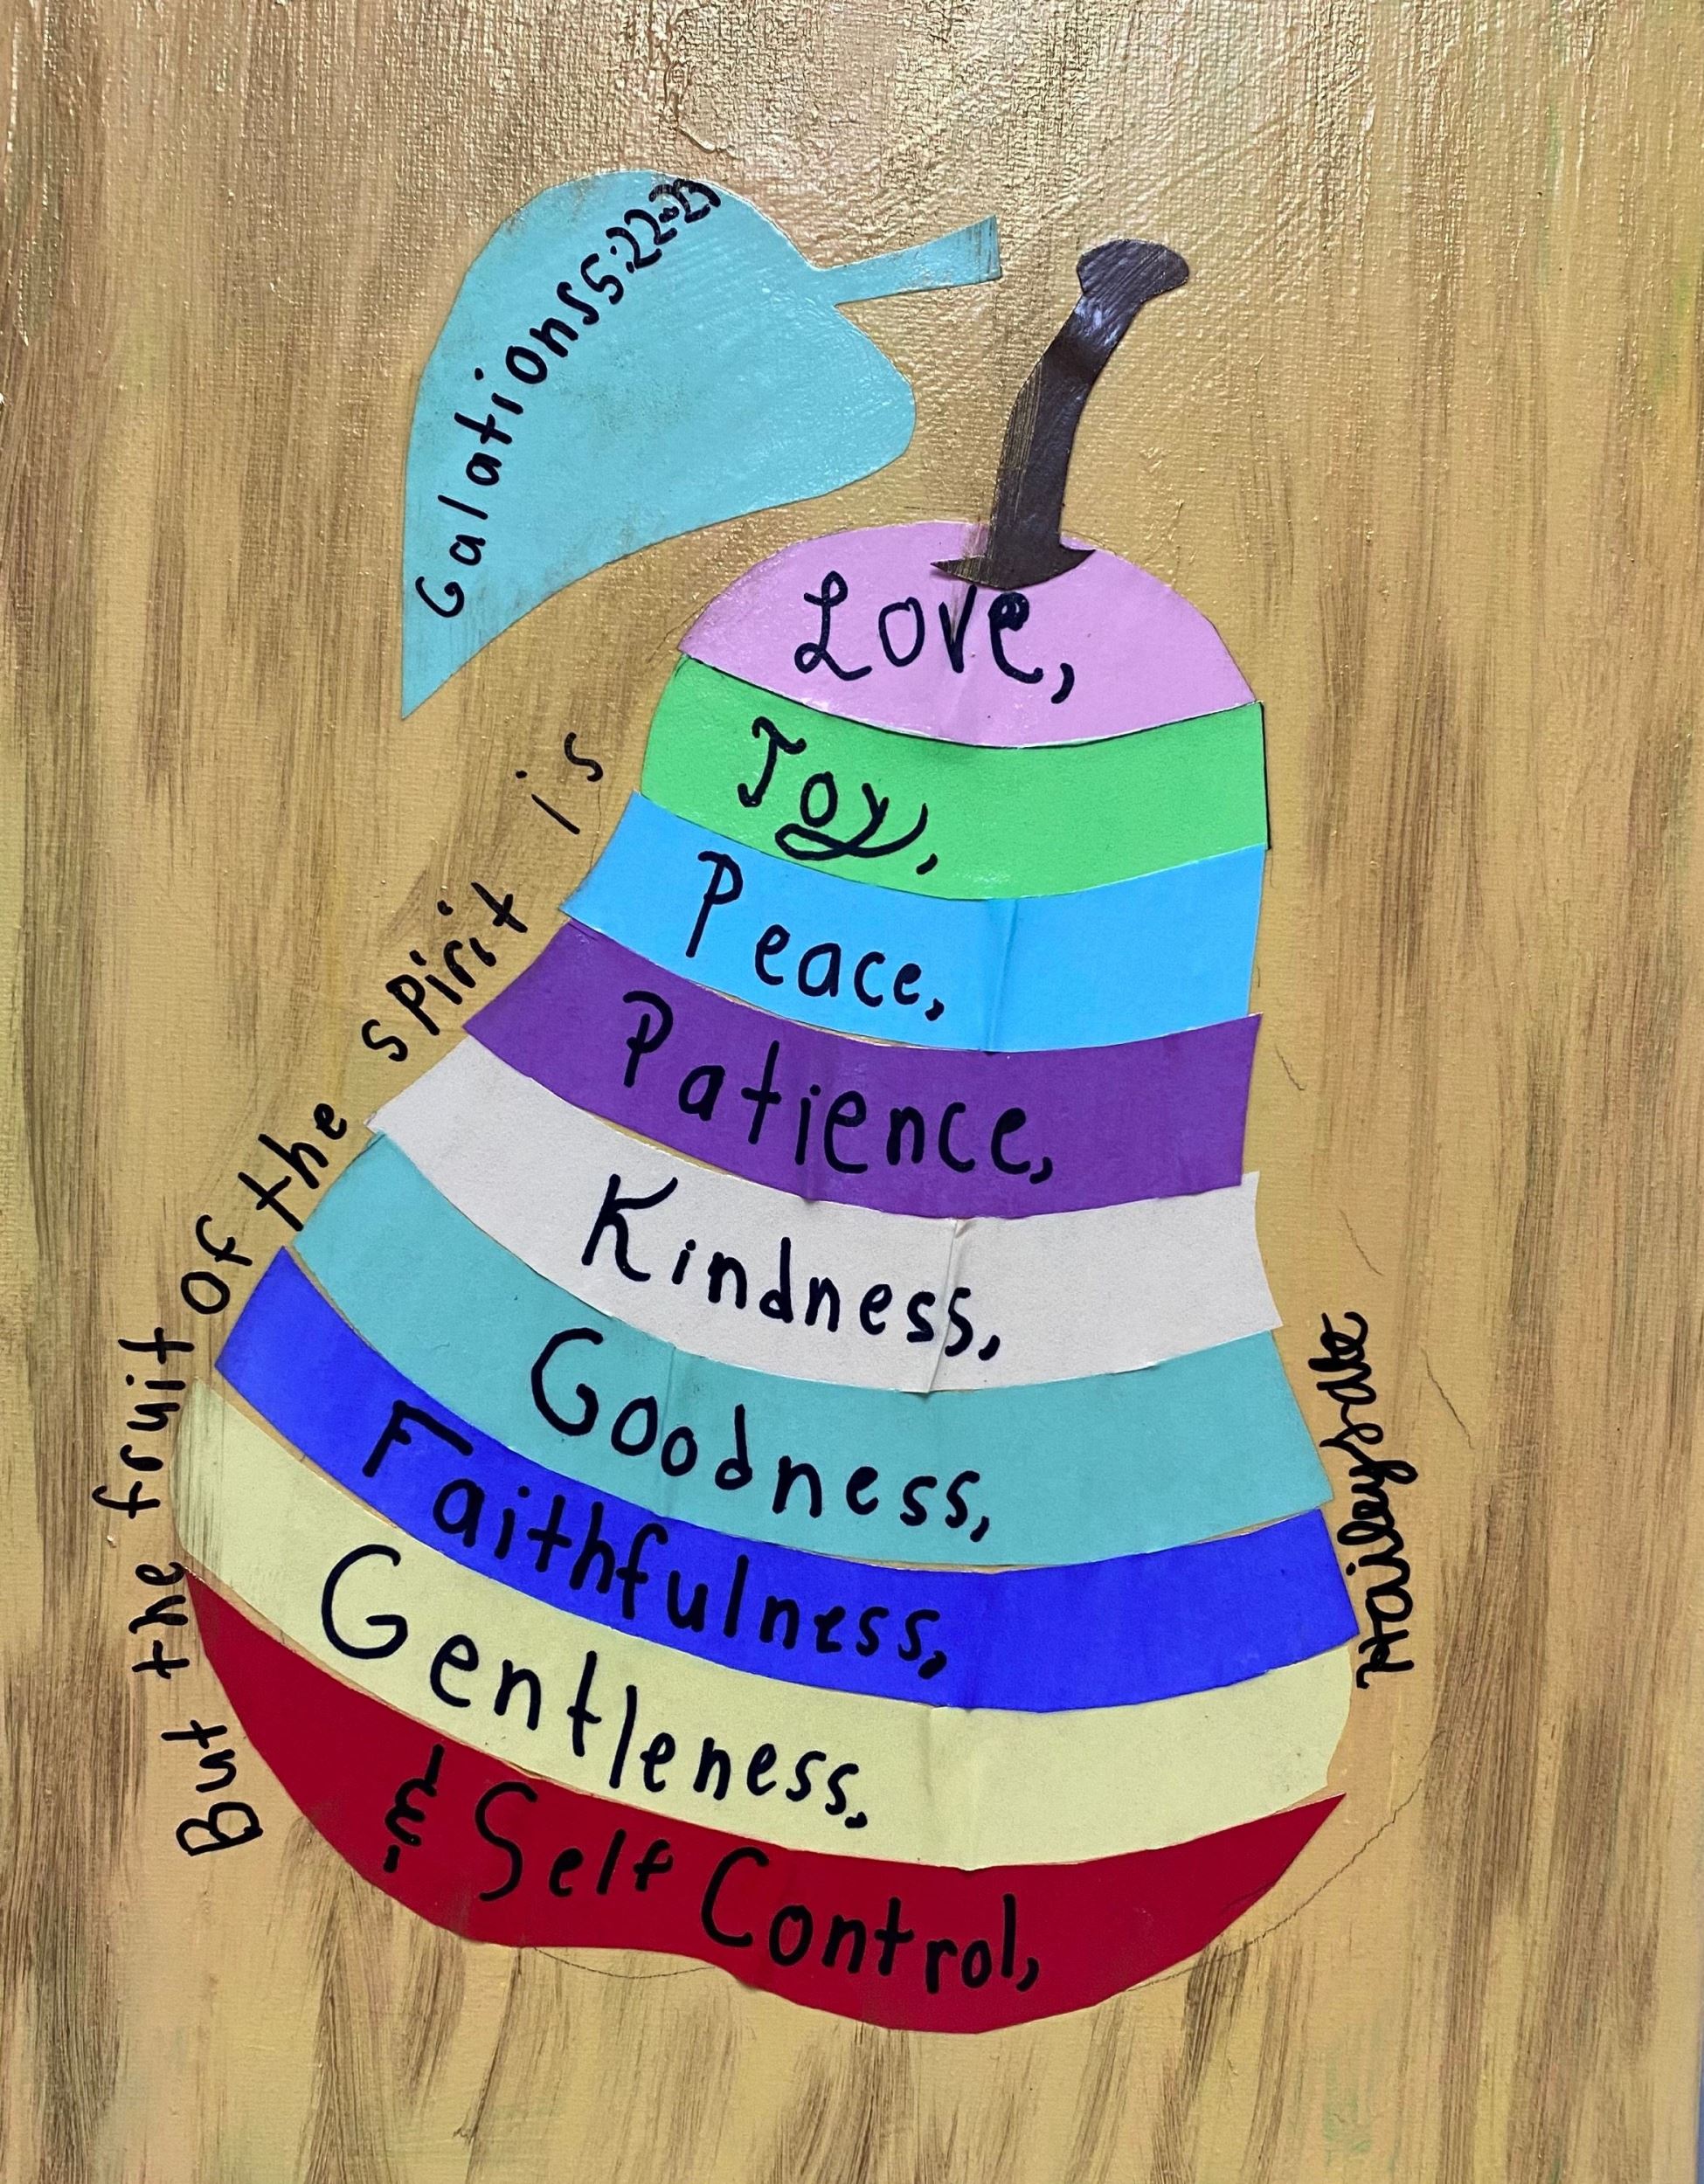 Galations 5:22-23
But the fruit of the spirit is
Love,
Joy,
Peace,
Patience,
Kindness,
Goodness,
Faithfulness,
Gentleness,
& Self Control,